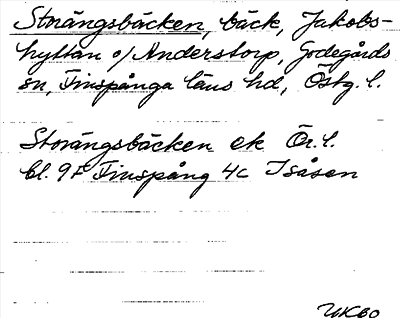 Storängsbäcken, bäck, Jakobs-
hyttan o/ Anderstorp, Godegårds
sn, Finspånga läns hd, Östg. l.
Storängsbäcken ek Ör. l.
bl. 9F Finspång 4c Isåsen
UK60